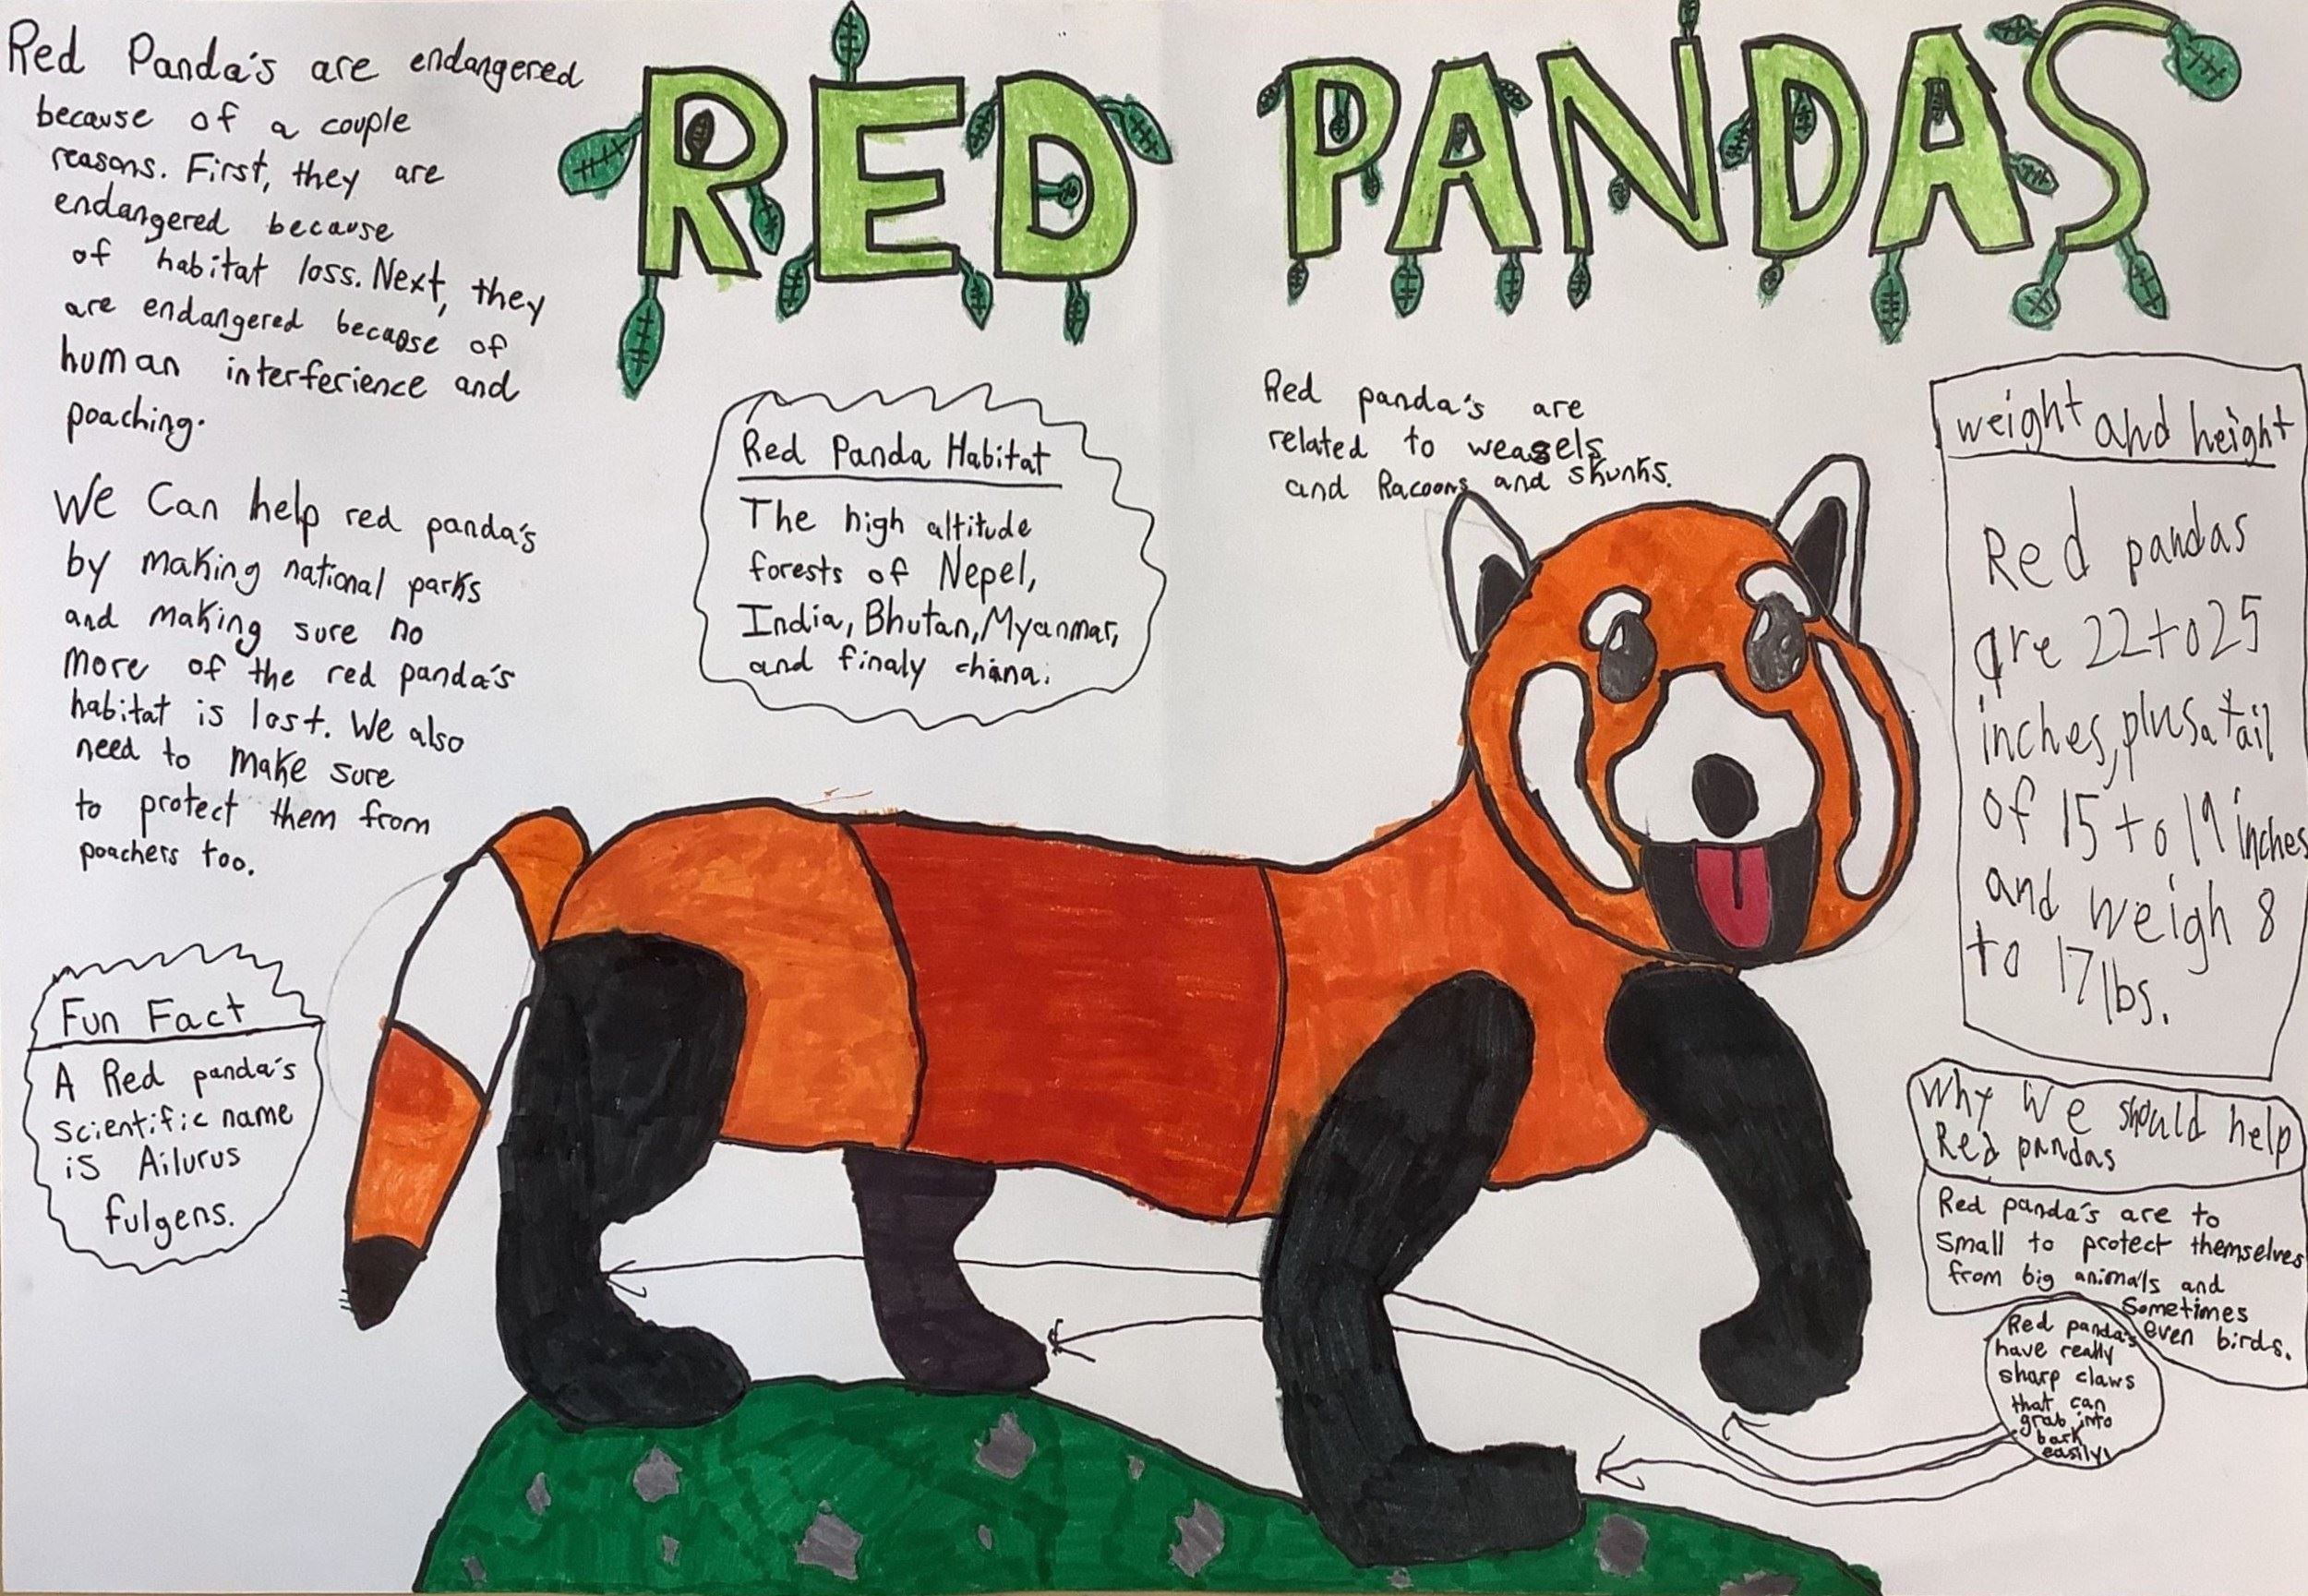 RED PANDAS
Red Panda's are endangered
because of a couple
reasons. First, they are
endangered because
of habitat loss. Next, they
are endangered because of
human interferience and
poaching.
We Can help red panda's
by making national parks
and making sure no
more of the red panda's
habitat is lost. We also
need to make sure
to protect them from
poachers too.
Fun Fact
A Red panda's
scientific name
is Ailurus
fulgens.
Red Panda Habitat
The high altitude
forests of Nepel,
India, Bhutan, Myanmar,
and finaly china.
Red panda's are
related to weasels
and Racoons and skunks.
weight and height
Red pandas
are 22 to 25
inches, plus a tail
of 15 to 19 inches
and weigh 8
to 17 lbs.
Why We should help
Red pandas
Red panda's are to
small to protect themselves
from big animals and
sometimes
even birds.
Red panda's
have really
sharp claws
that can
grab into
bark
easily!